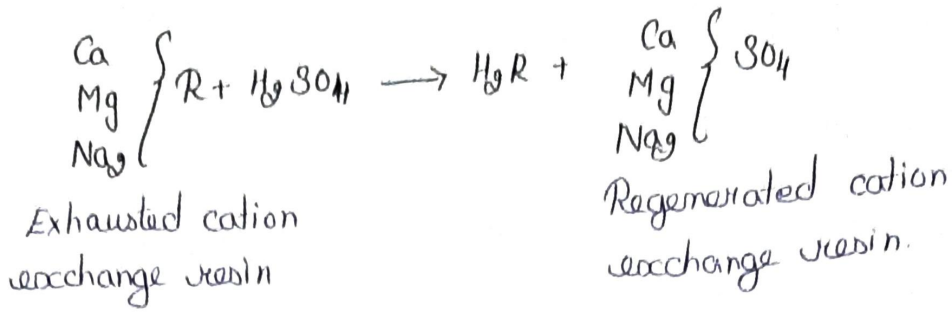 Ca
Mg } R + H2SO4 → H2R +
Na2
Ca
Mg } SO4
Na2
Exhausted cation
exchange resin
Regenerated cation
exchange resin.